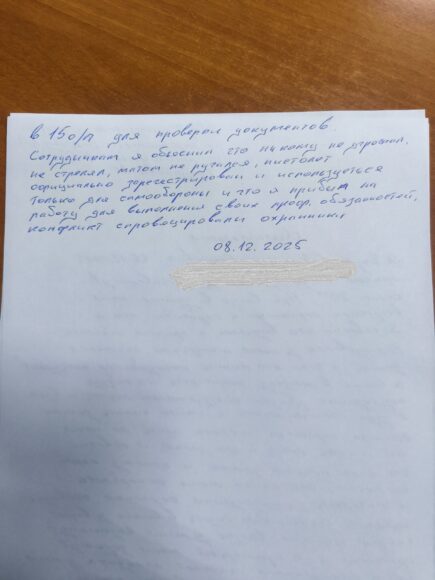 в 15 о/п для проверки документов.
Сотрудникам я объяснил что никому не угрожал,
не стрелял, матом не ругался, пистолет
официально зарегестрирован и используеться
только для самообороны и что я прибыл на
работу для выполнения своих проф. обязанностей,
конфликт спровоцировали охранники
08.12.2025